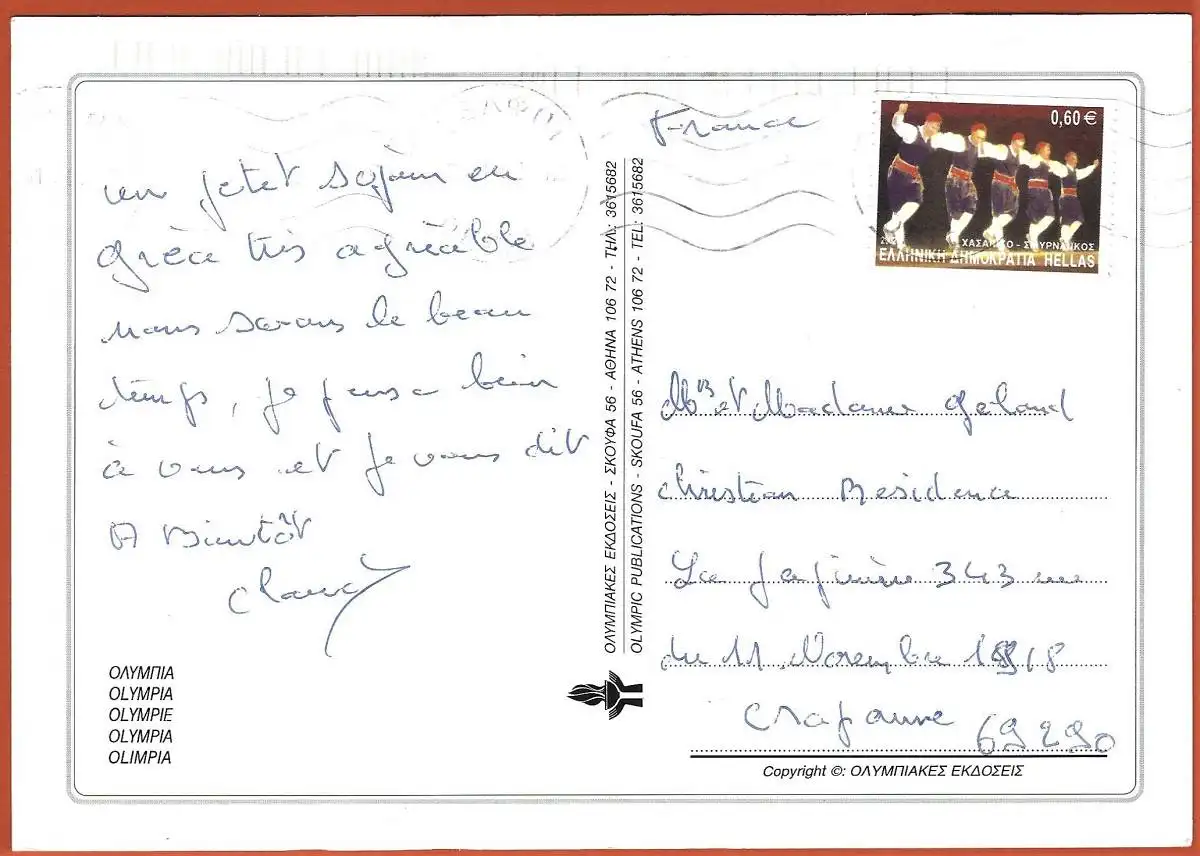 un petet séjour en
grèce très agréable
nous savons le beau
temps, je pense bien
à vous et je vous dit
A Bientôt
Claude
ΟΛΥΜΠΙΑ
OLYMPIA
OLYMPIE
OLYMPIA
OLIMPIA
ΟΛΥΜΠΙΑΚΕΣ ΕΚΔΟΣΕΙΣ - ΣΚΟΥΦΑ 56 - ΑΘΗΝΑ 106 72 - ΤΗΛ: 3615682
OLYMPIC PUBLICATIONS - SKOUFA 56 - ATHENS 106 72 - TEL: 3615682
France
0,60 €
ΧΑΣΑΠΙΚΟ - ΣΜΥΡΝΑΙΙΚΟΣ
ΕΛΛΗΝΙΚΗ ΔΗΜΟΚΡΑΤΙΑ HELLAS
Mr et Madame Geland
Christian Residence
La 343 rue
du 11 Novembre 1918
Craponne 69290
Copyright ©: ΟΛΥΜΠΙΑΚΕΣ ΕΚΔΟΣΕΙΣ